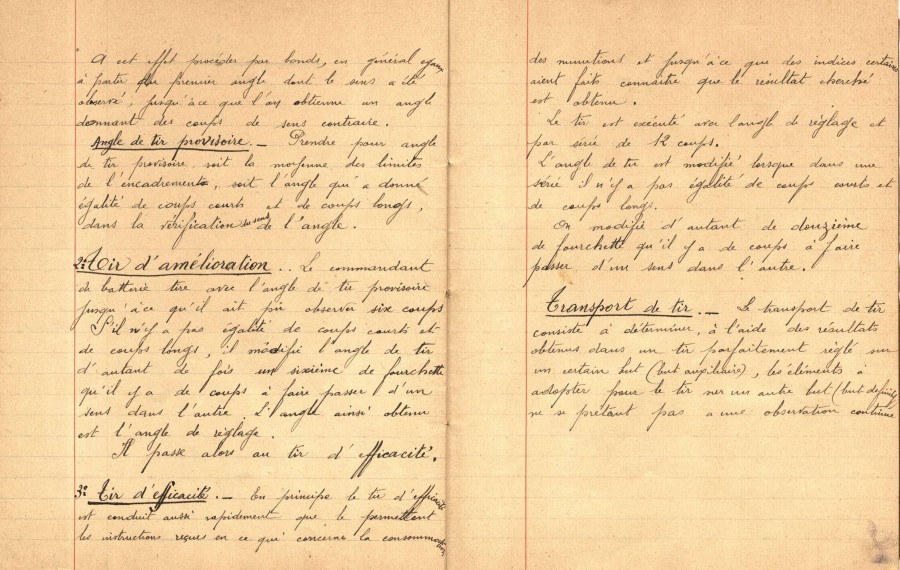 A cet effet procéder par bonds, en général égaux
à partir du premier angle dont le sens a été
observé, jusqu'à ce que l'on obtienne un angle
donnant des coups de sens contraire.
Angle de tir provisoire. — Prendre pour angle
de tir provisoire soit la moyenne des limites
de l'encadrement, soit l'angle qui a donné
égalité de coups courts et de coups longs,
dans la vérification du sens de l'angle.
2º Tir d'amélioration .. Le commandant
de batterie tire avec l'angle de tir provisoire
jusqu'à ce qu'il ait pu observer six coups
S'il n'y a pas égalité de coups courts et
de coups longs, il modifie l'angle de tir
d'autant de fois un sixième de fourchette
qu'il y a de coups à faire passer d'un
sens dans l'autre. L'angle ainsi obtenu
est l'angle de réglage.
Il passe alors au tir d'efficacité.
3º Tir d'efficacité. — En principe le tir d'efficacité
est conduit aussi rapidement que le permettent
les instructions reçues en ce qui concerne la consommation
des munitions et jusqu'à ce que des indices certains
aient faits connaître que le résultat cherché
est obtenu.
Le tir est exécuté avec l'angle de réglage et
par série de 12 coups.
L'angle de tir est modifié lorsque dans une
série il n'y a pas égalité de coups courts et
de coups longs.
On modifie d'autant de douzième
de fourchette qu'il y a de coups à faire
passer d'un sens dans l'autre.
Transport de tir .— Le transport de tir
consiste à déterminer, à l'aide des résultats
obtenus dans un tir parfaitement réglé sur
un certain but (but auxiliaire), les éléments à
adopter pour le tir sur un autre but (but définitif)
ne se prêtant pas a une observation continue